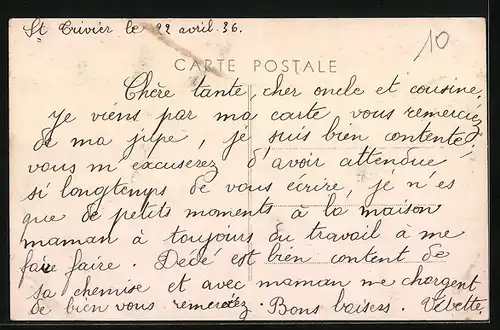 St Trivier le 22 avril. 36.
10
CARTE POSTALE
Chère tante, cher oncle et cousine,
Je viens par ma carte vous remerciez
de ma jupe, je suis bien contente.
vous m'excuserez d'avoir attendue
si longtemps de vous écrire, je n'es
que de petits moments à la maison
maman à toujours du travail à me
faire faire. Dédé est bien content de
sa chemise et avec maman me chargent
de bien vous remerciez. Bons baisers.